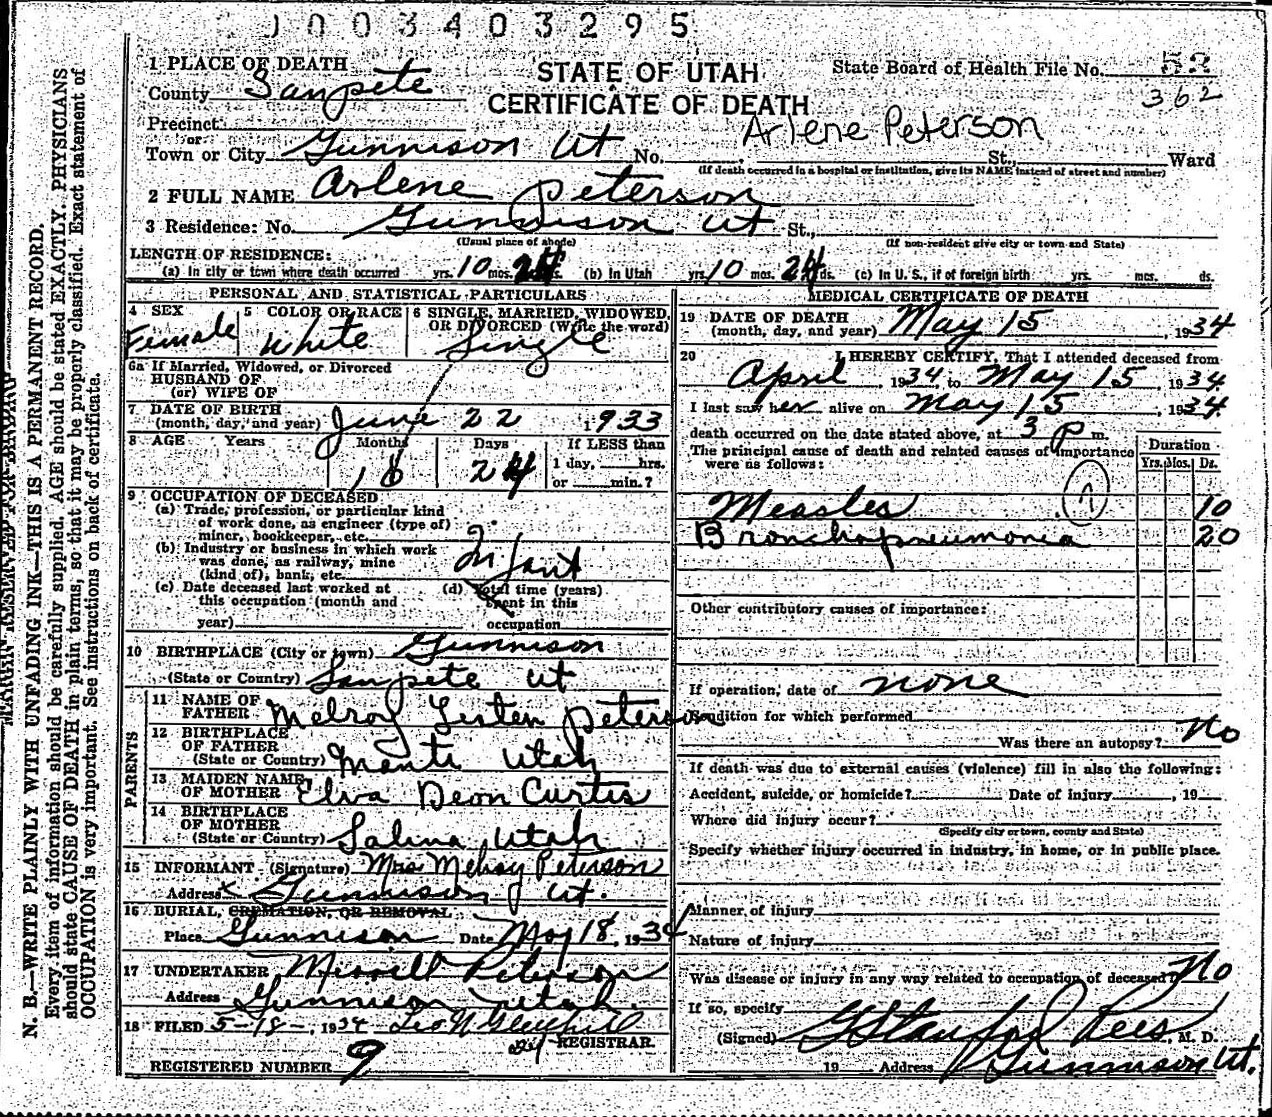 1003403295
MARGIN RESERVED FOR BINDING
N. B.—WRITE PLAINLY WITH UNFADING INK—THIS IS A PERMANENT RECORD.
Every item of information should be carefully supplied. AGE should be stated EXACTLY. PHYSICIANS
should state CAUSE OF DEATH in plain terms, so that it may be properly classified. Exact statement of
OCCUPATION is very important. See instructions on back of certificate.
1 PLACE OF DEATH
County Sanpete
Precinct
or
Town or City Gunnison Ut No. St., Ward
STATE OF UTAH
CERTIFICATE OF DEATH
State Board of Health File No. 52
362
Arlene Peterson
(If death occurred in a hospital or institution, give its NAME instead of street and number)
2 FULL NAME Arlene Peterson
3 Residence: No. Gunnison Ut St.,
(Usual place of abode) (If non-resident give city or town and State)
LENGTH OF RESIDENCE:
(a) In city or town where death occurred yrs. 10 mos. 24 ds. (b) In Utah yrs. 10 mos. 24 ds. (c) In U. S., if of foreign birth yrs. mos. ds.
PERSONAL AND STATISTICAL PARTICULARS
4 SEX Female
5 COLOR OR RACE White
6 SINGLE, MARRIED, WIDOWED,
OR DIVORCED (Write the word)
Single
6a If Married, Widowed, or Divorced
HUSBAND OF
(or) WIFE OF
7 DATE OF BIRTH
(month, day, and year) June 22 1933
8 AGE Years Months Days If LESS than
1 day, hrs.
or min.?
10 24
9 OCCUPATION OF DECEASED
(a) Trade, profession, or particular kind
of work done, as engineer (type of)
miner, bookkeeper, etc.
(b) Industry or business in which work
was done, as railway, mine
(kind of), bank, etc.
Infant
(c) Date deceased last worked at
this occupation (month and
year)
(d) Total time (years)
spent in this
occupation
10 BIRTHPLACE (City or town) Gunnison
(State or Country) Sanpete Ut
PARENTS
11 NAME OF
FATHER Melroy Lesten Peterson
12 BIRTHPLACE
OF FATHER
(State or Country) Manti Utah
13 MAIDEN NAME
OF MOTHER Elva Deon Curtis
14 BIRTHPLACE
OF MOTHER
(State or Country) Salina Utah
15 INFORMANT (Signature) Mrs Melroy Peterson
Address Gunnison Ut.
16 BURIAL, CREMATION, OR REMOVAL
Place Gunnison Date May 18, 1934
17 UNDERTAKER Merrill Peterson
Address Gunnison Utah.
18 FILED 5-18-, 1934
REGISTRAR.
REGISTERED NUMBER 9
MEDICAL CERTIFICATE OF DEATH
19 DATE OF DEATH
(month, day, and year) May 15 1934
20 I HEREBY CERTIFY, That I attended deceased from
April 1934 to May 15, 1934
I last saw her alive on May 15, 1934
death occurred on the date stated above, at 3 p m.
The principal cause of death and related causes of importance
were as follows:
Duration
Yrs. Mos. Ds.
Measles 10
Bronchopneumonia 20
Other contributory causes of importance:
If operation, date of none
Condition for which performed
Was there an autopsy? No
If death was due to external causes (violence) fill in also the following:
Accident, suicide, or homicide? Date of injury , 19
Where did injury occur?
(Specify city or town, county and State)
Specify whether injury occurred in industry, in home, or in public place.
Manner of injury
Nature of injury
Was disease or injury in any way related to occupation of deceased? No
If so, specify
(Signed) G Stanford Rees, M. D.
19 Address Gunnison Ut.